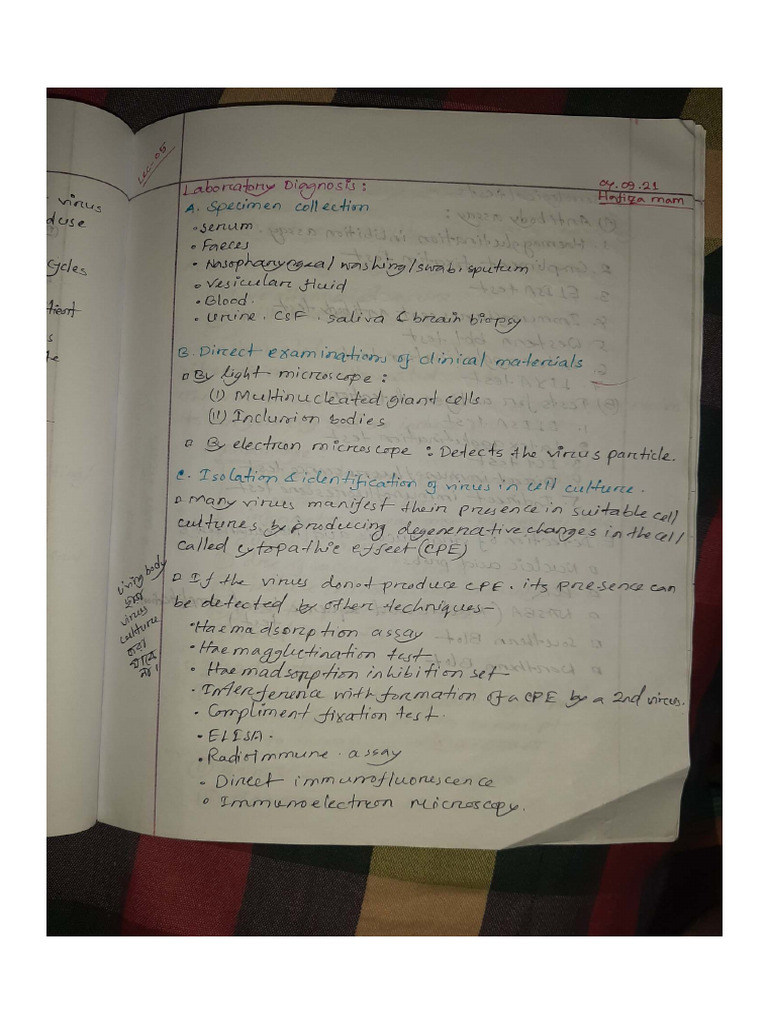 virus
duse
ycles
tient
s
te
Lec-05
04.09.21
Laboratory Diagnosis:
Hafiza mam
A. Specimen collection
• Serum
• Faeces
• Nasopharyngeal washing/swab, sputum
• Vesicular fluid
• Blood.
• Urine. CSF. Saliva & brain biopsy
B. Direct examinations of clinical materials
□ By light microscope:
(I) Multinucleated giant cells
(II) Inclusion bodies
□ By electron microscope: Detects the virus particle.
C. Isolation & identification of virus in cell culture.
□ Many virus manifest their presence in suitable cell
cultures by producing degenerative changes in the cell
called cytopathic effect (CPE)
Living body
virus
culture
করা
যাবে
না।
□ If the virus donot produce CPE, its presence can
be detected by other techniques-
• Haemadsorption assay
• Haemagglutination test
• Haemadsorption inhibition set
• Interference with formation of a CPE by a 2nd virus.
• Compliment fixation test.
• ELISA.
• Radioimmune assay
• Direct immunofluorescence
• Immunoelectron microscopy.